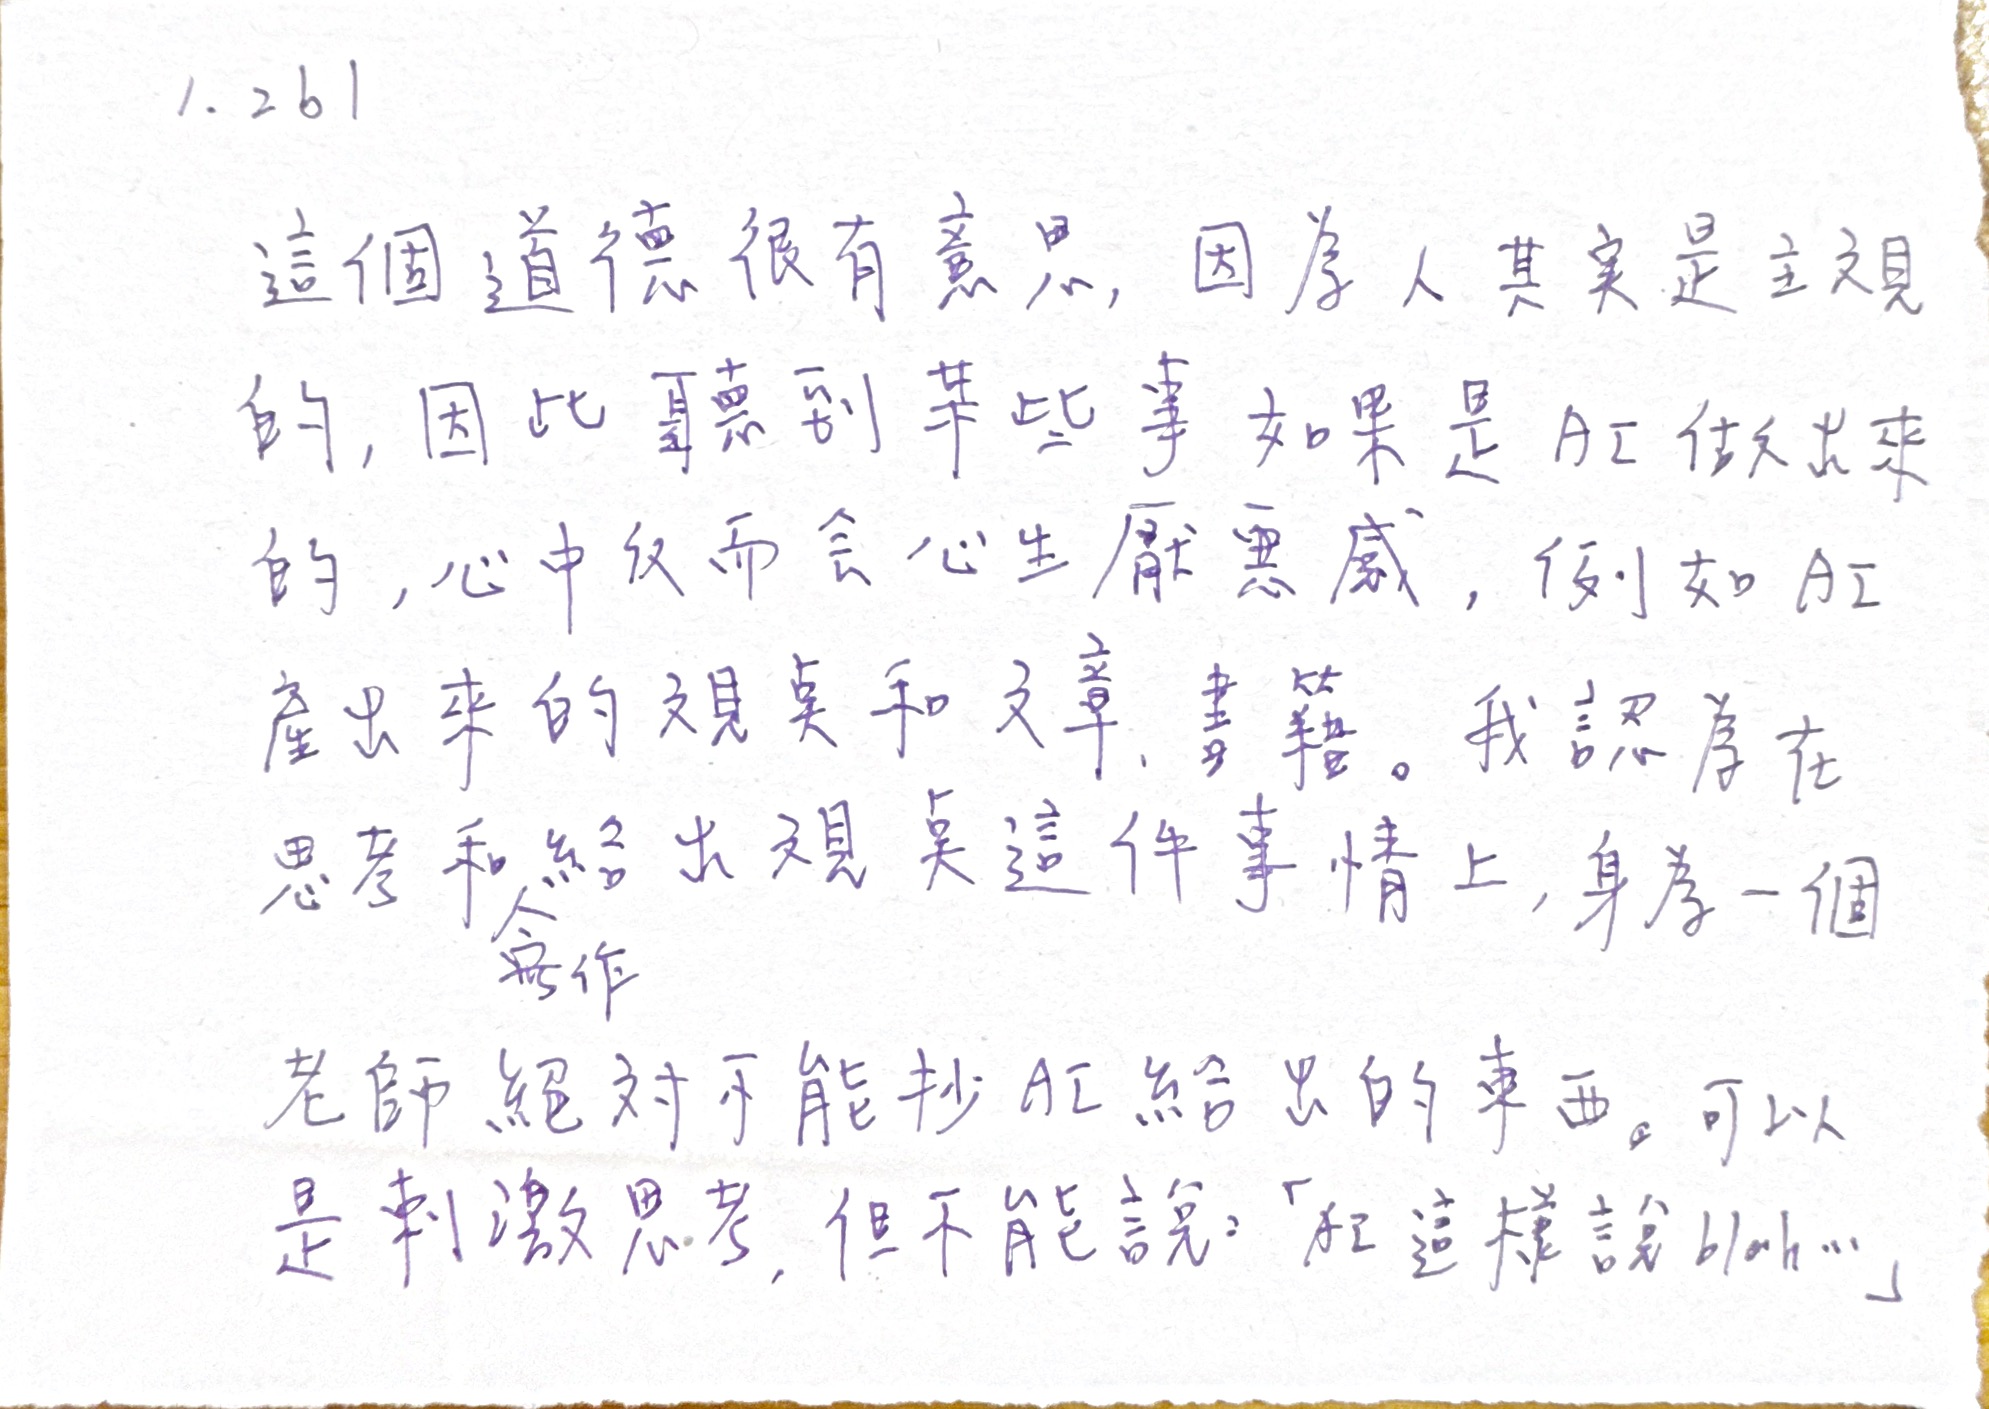 1.261
這個道德很有意思,因為人其实是主观
的,因此聽到某些事如果是AI做出來
的,心中反而会心生厭惡感,例如AI
產出來的观點和文章、書籍。我認為在
思考和給出观點這件事情上,身為一個
創作
老師絕对不能抄AI給出的東西。可以
是刺激思考,但不能說:「AI這樣說blah…」